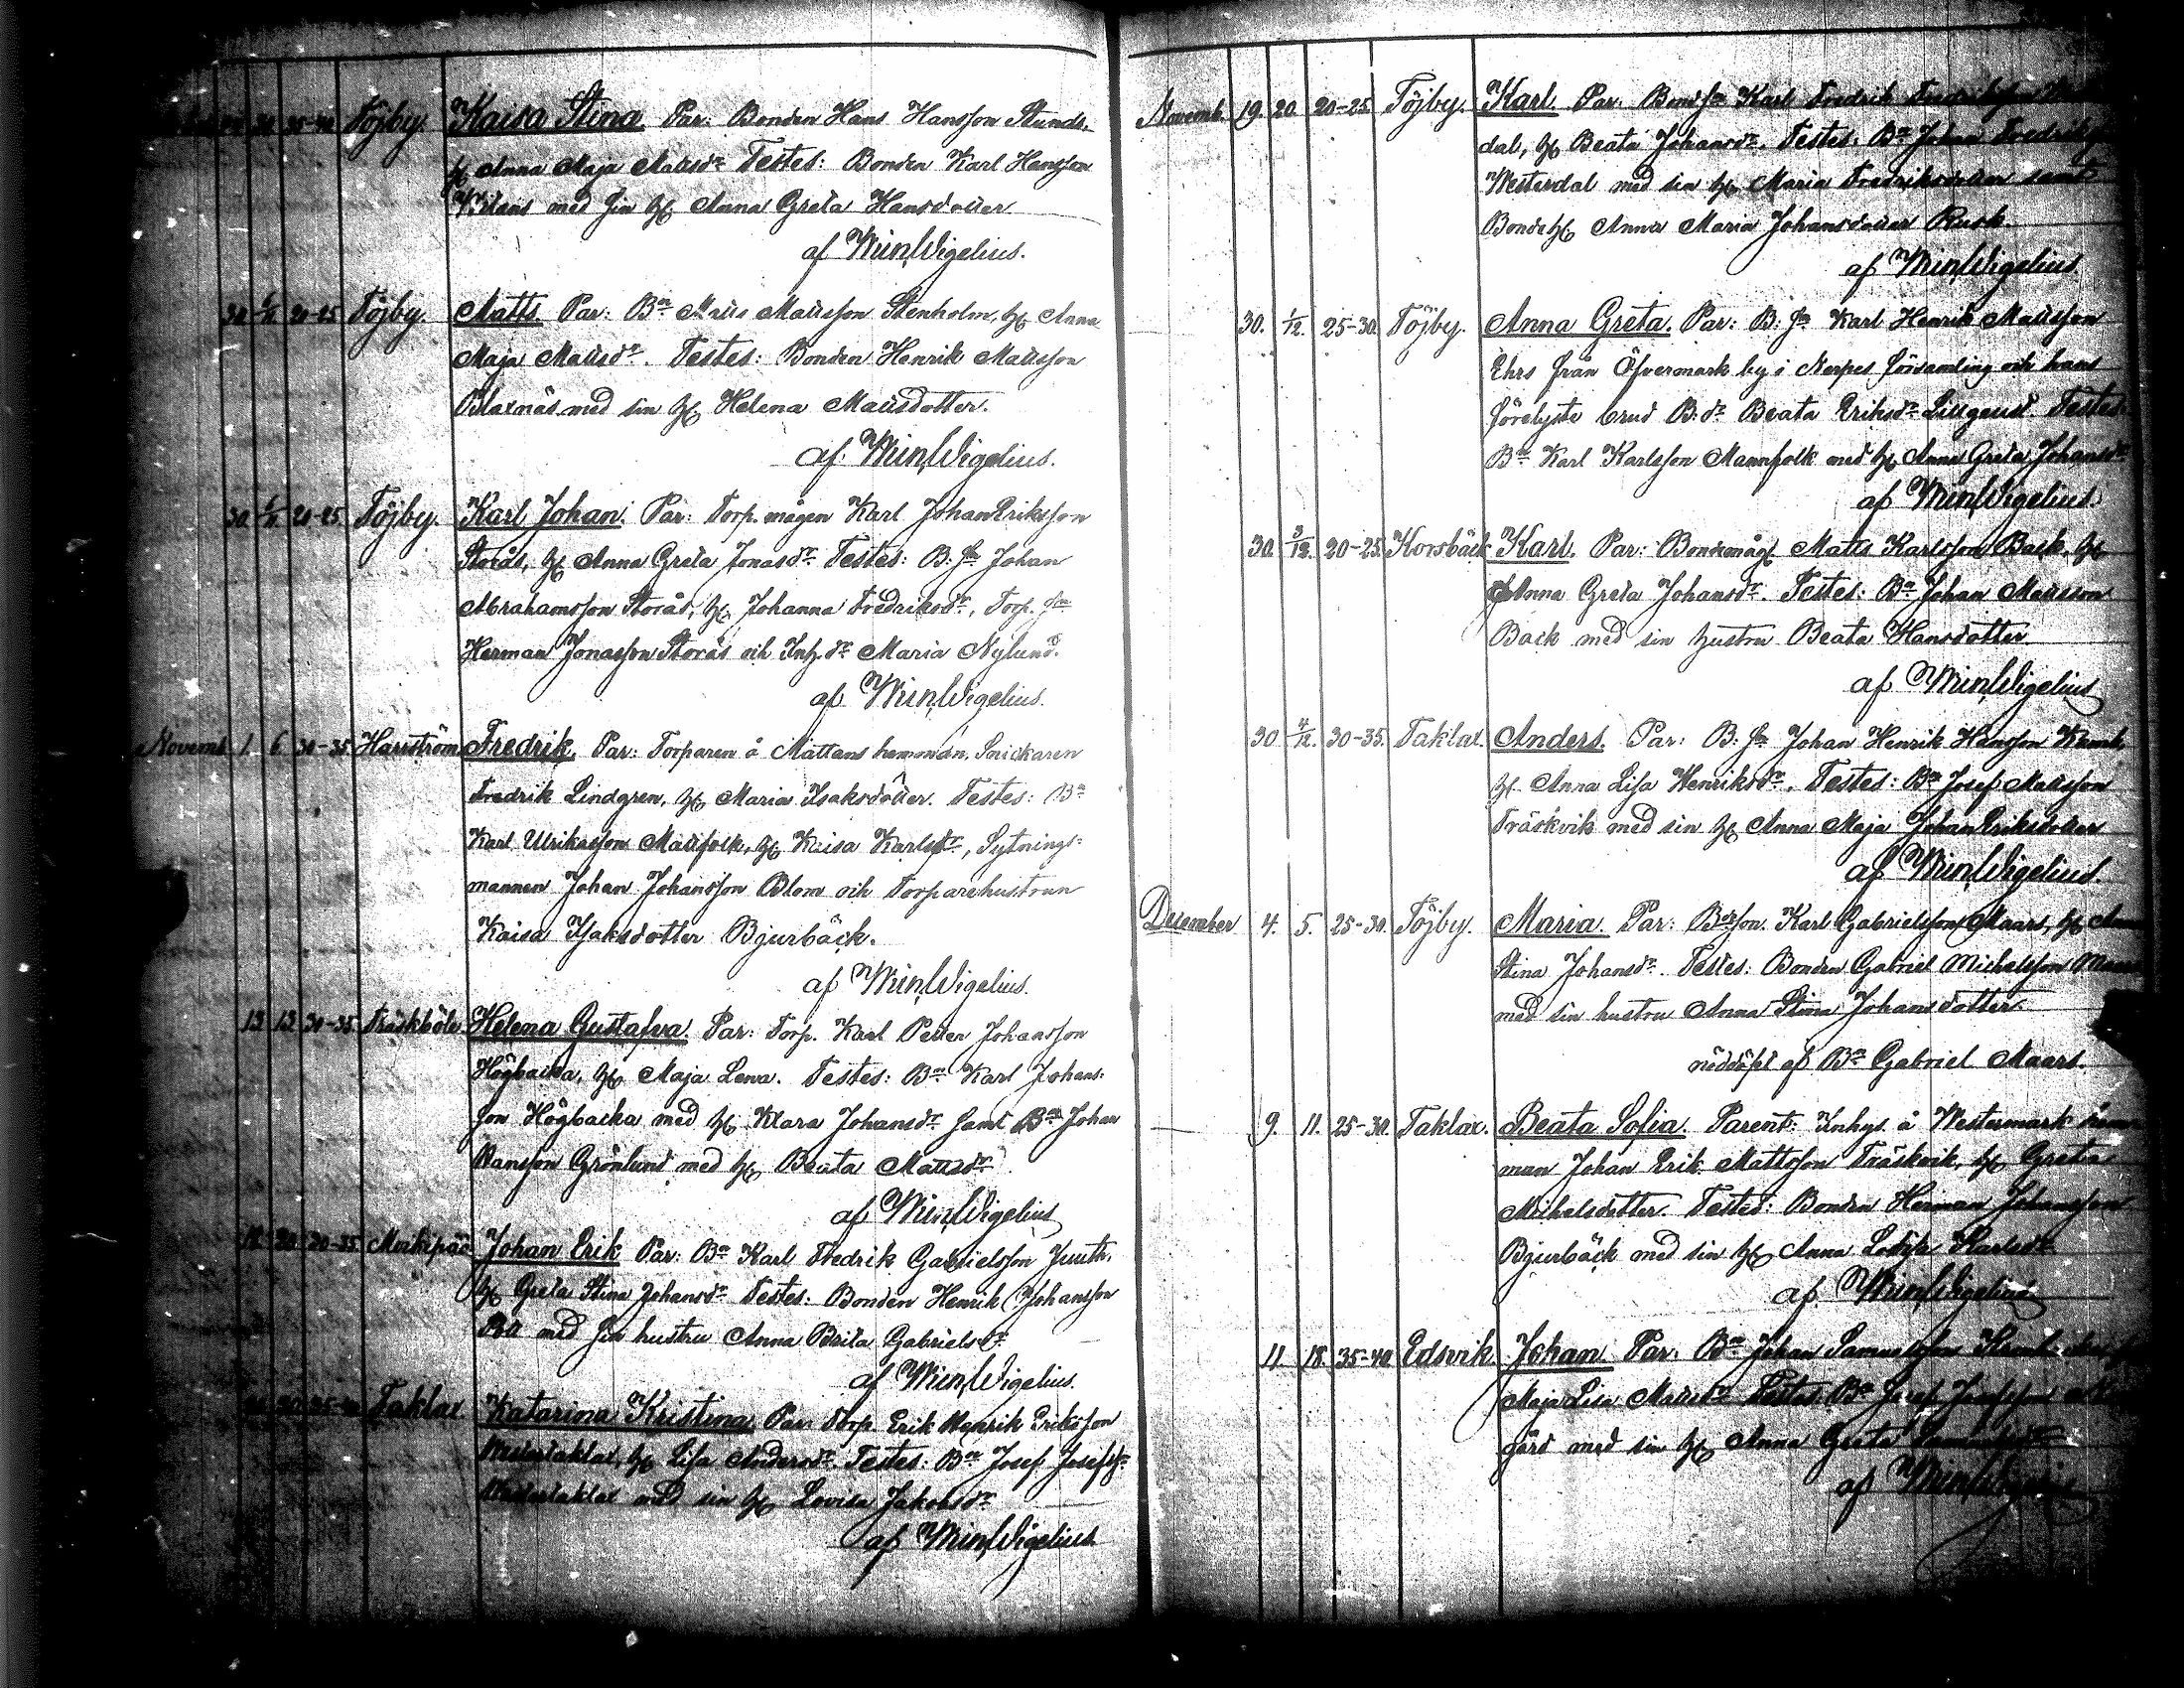 35-40 Töjby. Kaisa Stina. Par: Bonden Hans Hansson Stunds,
h. Anna Maja Mattsdr. Testes: Bonden Karl Hansson
med sin h. Anna Greta Hansdotter
af Min. Wigelius.
30. 1/11 20-25 Töjby. Matts. Par: Bn Mattsson Stenholm, h. Anna
Maja Mattsdr. Testes: Bonden Henrik Mattsson
Blaxnäs med sin h. Helena Mattsdotter.
af Min. Wigelius.
30. 1/11 20-25 Töjby. Karl Johan. Par: Torp. mågen Karl Johan Eriksson
Storås, h. Anna Greta Jonasdr. Testes: B. sn Johan
Abrahamsson Storås, h. Johanna Fredriksdr, Torp. sn
Herman Jonasson Storås och Inh. dr Maria Nylund.
af Min. Wigelius.
Novemb. 1. 6. 30-35 Harrström Fredrik. Par: Torparen å Mattans hemman, Snickaren
Fredrik Lindgren, h. Maria Isaksdotter. Testes: Bn
Karl Ulriksson Mattfolk, h. Kaisa Karlsdr, Sytnings-
mannen Johan Johansson Blom och Torparehustrun
Kaisa Isaksdotter Bjurbäck.
af Min. Wigelius.
12 13 30-35 Träskböle Helena Gustafva. Par: Torp. Karl Petter Johansson
Högbacka, h. Maja Lena. Testes: Bn Karl Johans-
son Högbacka med h. Klara Johansdr samt Bn Johan
Hansson Grönlund med h. Beata Mattsdr
af Min. Wigelius
30-35 Molkipää Johan Erik Par: Bn Karl Fredrik Gabrielsson Juuth,
h. Greta Stina Johansdr Testes: Bonden Henrik Johansson
med sin hustru Anna Brita Gabrielsdr
af Min. Wigelius.
Taklax Katarina Kristina Par: Torp. Erik Henrik Eriksson
h. Lisa Andersdr Testes: Bn Josef Josefss.
med sin h. Lovisa Jakobsdr
af Min. Wigelius
Novemb. 19. 20. 20-25 Töjby. Karl. Par: Bondsn Karl Fredrik Fredriksson
dal, h. Beata Johansdr. Testes: Bn Johan Fredriksson
Westerdal med sin h. Maria Fredriksdotter samt
Bondeh. Anna Maria Johansdotter Rusk.
af Min. Wigelius.
30. 1/12. 25-30. Töjby. Anna Greta. Par: B: sn Karl Henrik Mattsson
Ehrs från Öfvermark by i Nerpes församling och hans
förelyste brud B. dr Beata Eriksdr Lillgäud. Testes:
Bn Karl Karlsson Mannfolk med h. Anna Greta Johansdr
af Min. Wigelius.
30. 3/12. 20-25. Korsbäck Karl. Par: Bondemåg Matts Karlsson Back, h.
Anna Greta Johansdr. Testes: Bn Johan Mattsson
Back med sin hustru Beata Hansdotter
af Min. Wigelius
30 4/12. 30-35. Taklax. Anders. Par: B. sn Johan Henrik Hansson
h. Anna Lisa Henriksdr. Testes: Bn Josef Mattsson
Träskvik med sin h. Anna Maja Johan Eriksdotter
af Min. Wigelius.
December 4. 5. 25-30. Töjby. Maria. Par: Bdeson. Karl Gabrielsson Maars, h.
Stina Johansdr. Testes: Bonden Gabriel Michelsson
med sin hustru Anna Stina Johansdotter.
nöddöpt af Bn Gabriel Maars.
9. 11. 25-30. Taklax. Beata Sofia. Parent: Inhys. å Westermark
man Johan Erik Mattsson Träskvik, h. Greta
Michelsdotter. Testes: Bonden Herman Johansson
Bjurbäck med sin h. Anna Karlsdr
af Min. Wigelius
11. 18. 35-40 Edsvik. Johan Par: Bn Johan Samuelsson
Maja Lisa Mattsdr Testes: Bn Josef Josefsson
gård med sin h. Anna Greta
af Min. Wigelius